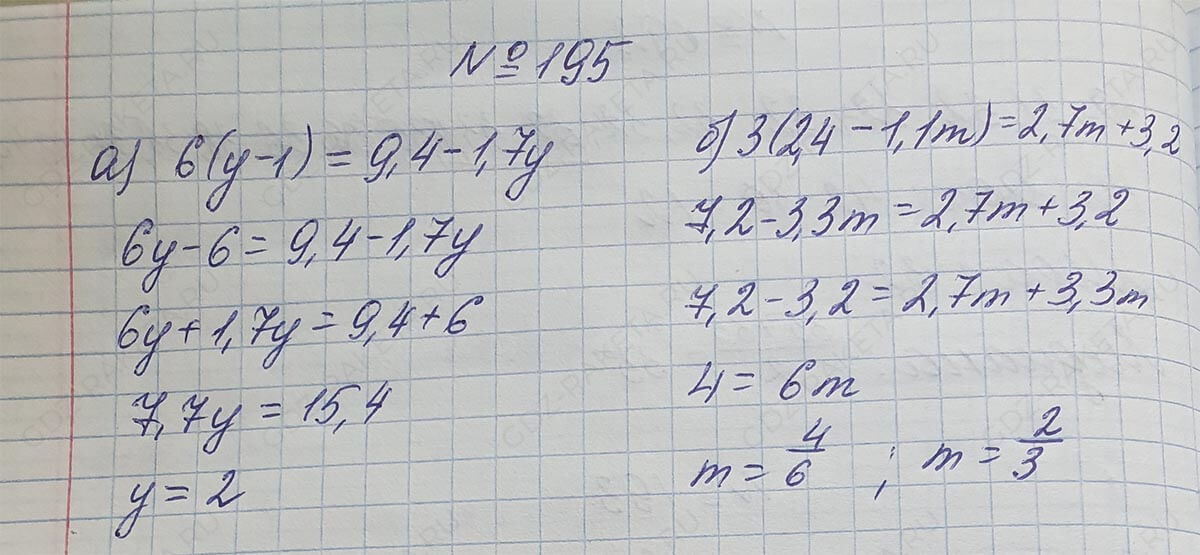 №195
а) 6(y-1)=9,4-1,7y
6y-6=9,4-1,7y
6y+1,7y=9,4+6
7,7y=15,4
y=2
б) 3(2,4-1,1m)=2,7m+3,2
7,2-3,3m=2,7m+3,2
7,2-3,2=2,7m+3,3m
4=6m
m=4/6 ; m=2/3